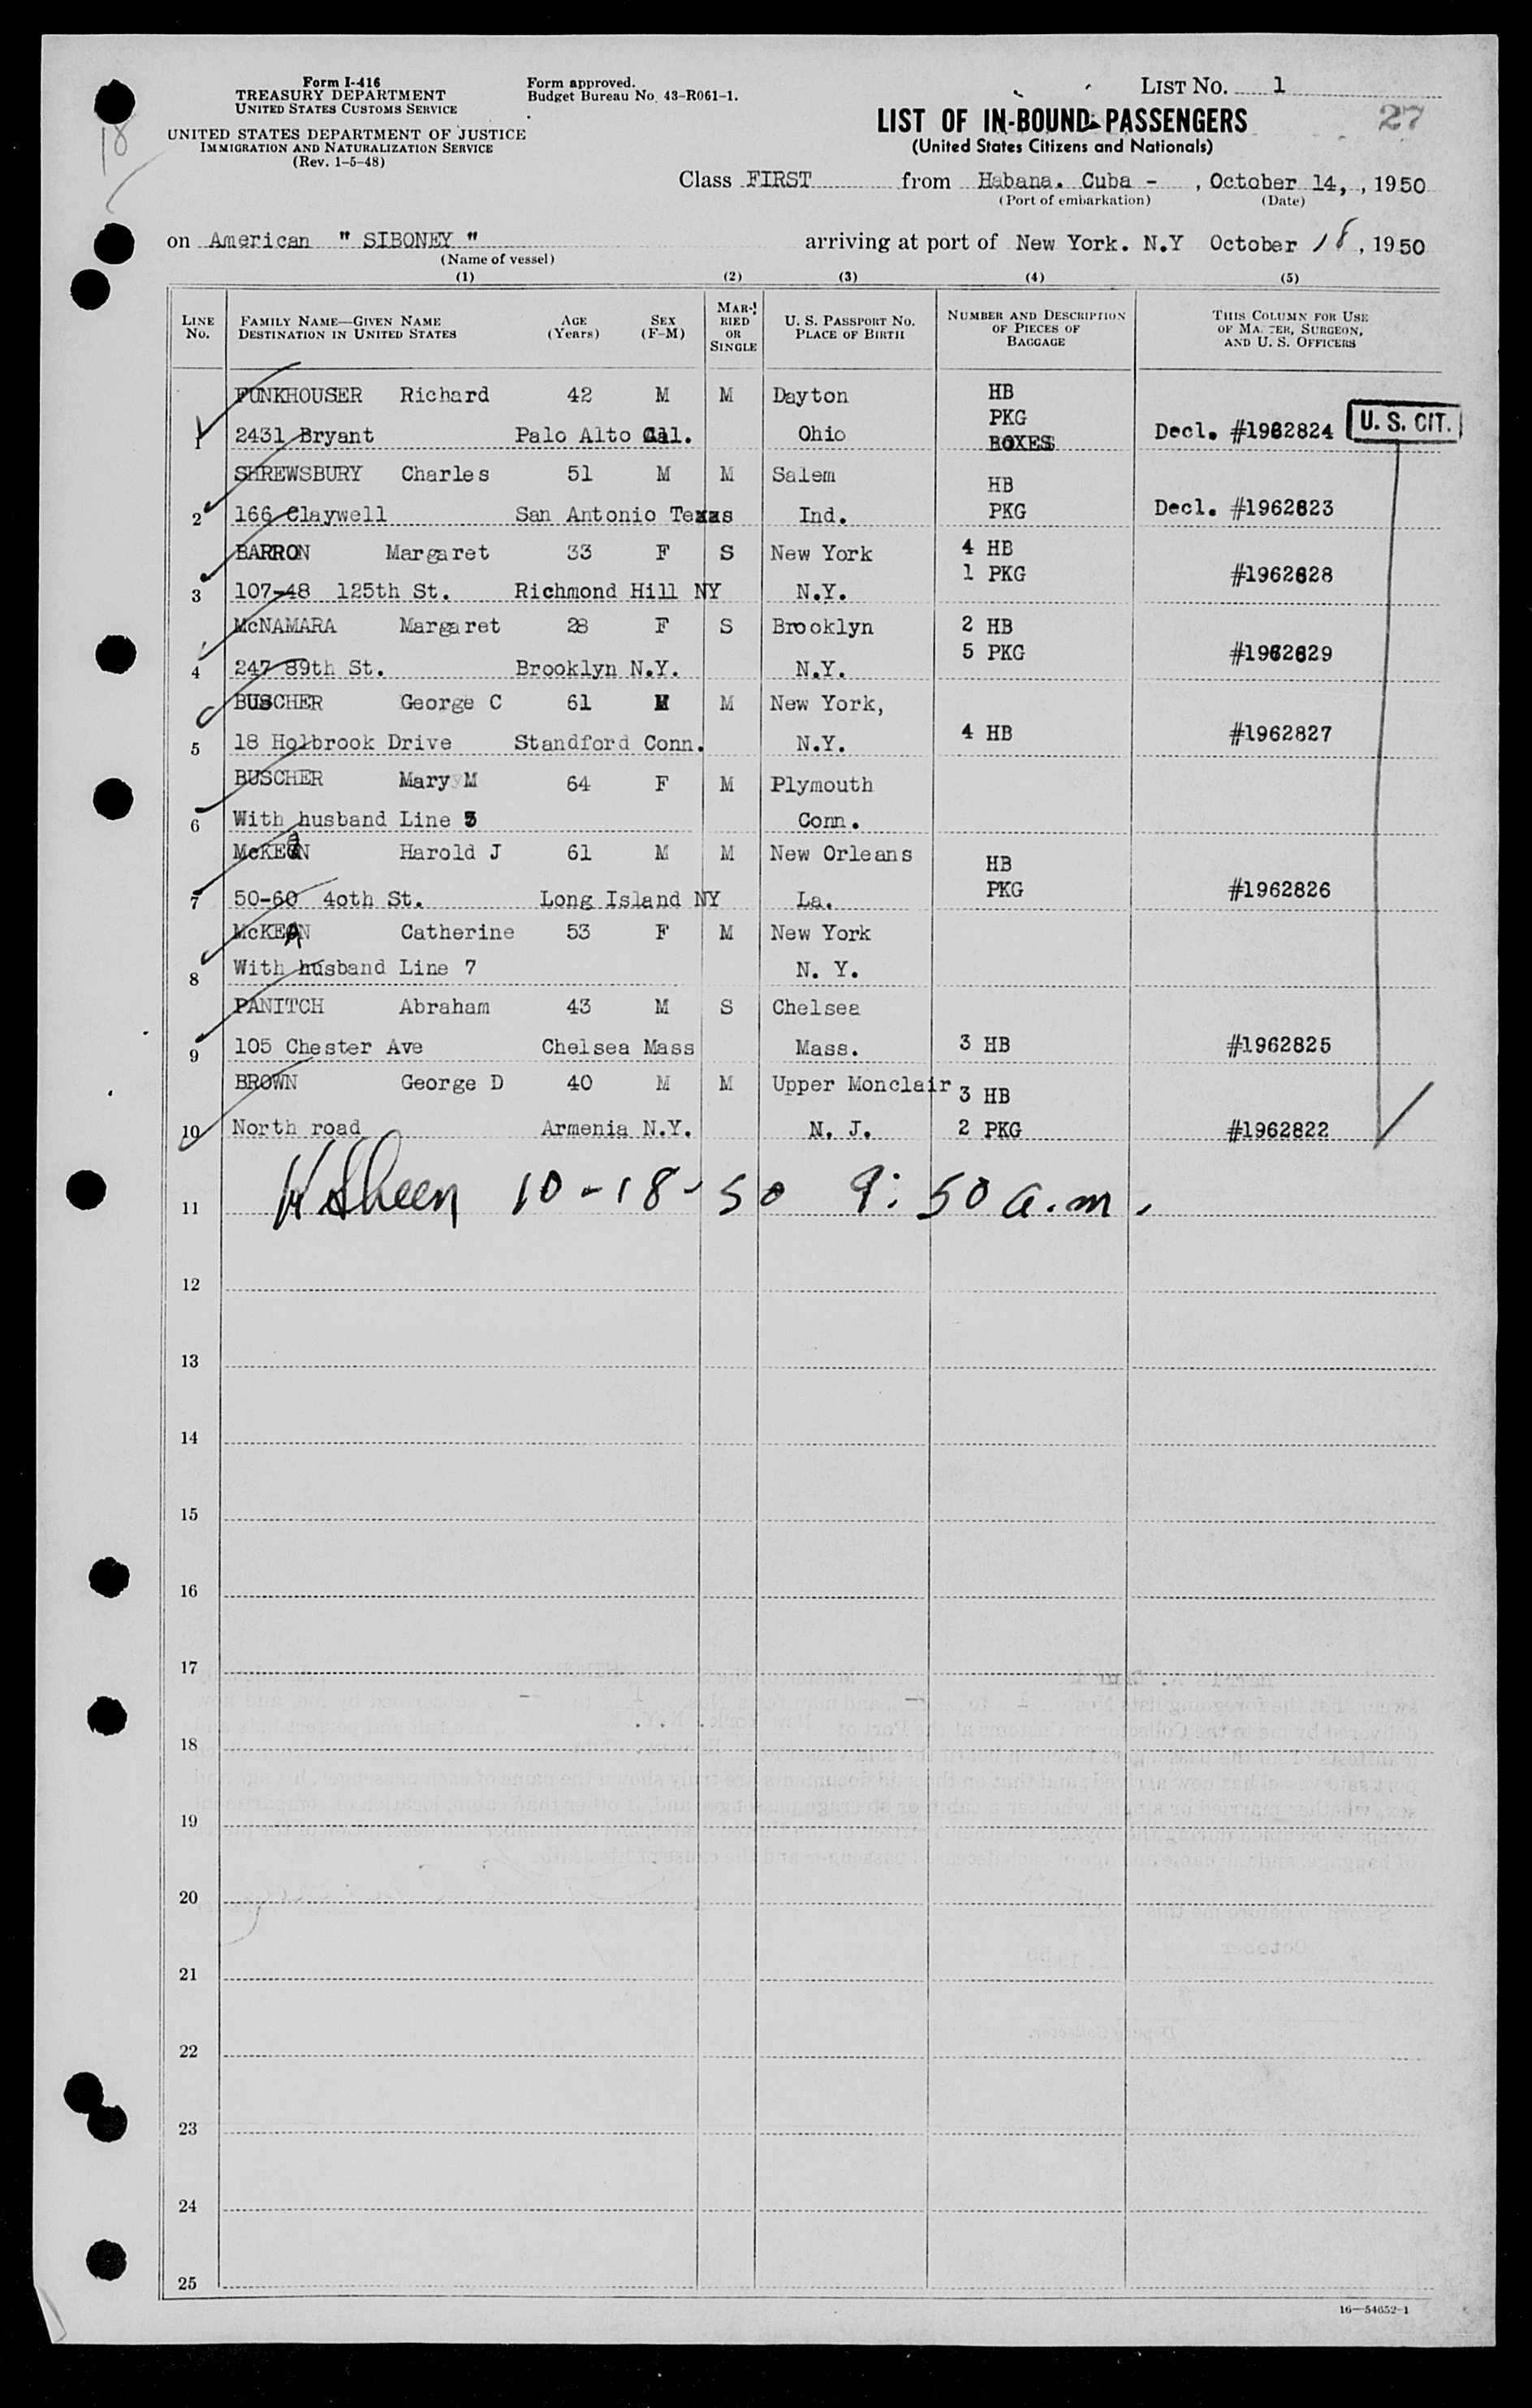 Form I-416
TREASURY DEPARTMENT
UNITED STATES CUSTOMS SERVICE
UNITED STATES DEPARTMENT OF JUSTICE
IMMIGRATION AND NATURALIZATION SERVICE
(Rev. 1-5-48)
Form approved.
Budget Bureau No. 43-R061-1.
LIST No. 1
27
18
LIST OF IN-BOUND PASSENGERS
(United States Citizens and Nationals)
Class FIRST from Habana. Cuba - , October 14, , 1950
(Port of embarkation) (Date)
on American " SIBONEY " arriving at port of New York. N.Y October 18, 1950
(Name of vessel)
(1) (2) (3) (4) (5)
LINE No. FAMILY NAME—GIVEN NAME DESTINATION IN UNITED STATES AGE (Years) SEX (F-M) MARRIED OR SINGLE U. S. PASSPORT NO. PLACE OF BIRTH NUMBER AND DESCRIPTION OF PIECES OF BAGGAGE THIS COLUMN FOR USE OF MASTER, SURGEON, AND U. S. OFFICERS
FUNKHOUSER Richard 42 M M Dayton HB
PKG
1 2431 Bryant Palo Alto Cal. Ohio BOXES Decl. #1962824 U. S. CIT.
SHREWSBURY Charles 51 M M Salem HB
2 166 Claywell San Antonio Texas Ind. PKG Decl. #1962823
BARRON Margaret 33 F S New York 4 HB
1 PKG #1962828
3 107-48 125th St. Richmond Hill NY N.Y.
McNAMARA Margaret 28 F S Brooklyn 2 HB
5 PKG #1962829
4 247 89th St. Brooklyn N.Y. N.Y.
BUSCHER George C 61 M M New York,
5 18 Holbrook Drive Standford Conn. N.Y. 4 HB #1962827
BUSCHER Mary M 64 F M Plymouth
6 With husband Line 5 Conn.
McKEAN Harold J 61 M M New Orleans HB
7 50-60 4oth St. Long Island NY La. PKG #1962826
McKEAN Catherine 53 F M New York
8 With husband Line 7 N. Y.
PANITCH Abraham 43 M S Chelsea
9 105 Chester Ave Chelsea Mass Mass. 3 HB #1962825
BROWN George D 40 M M Upper Monclair 3 HB
10 North road Armenia N.Y. N. J. 2 PKG #1962822
11 10-18-50 9:50 a.m.
12
13
14
15
16
17
18
19
20
21
22
23
24
25
16—54652-1